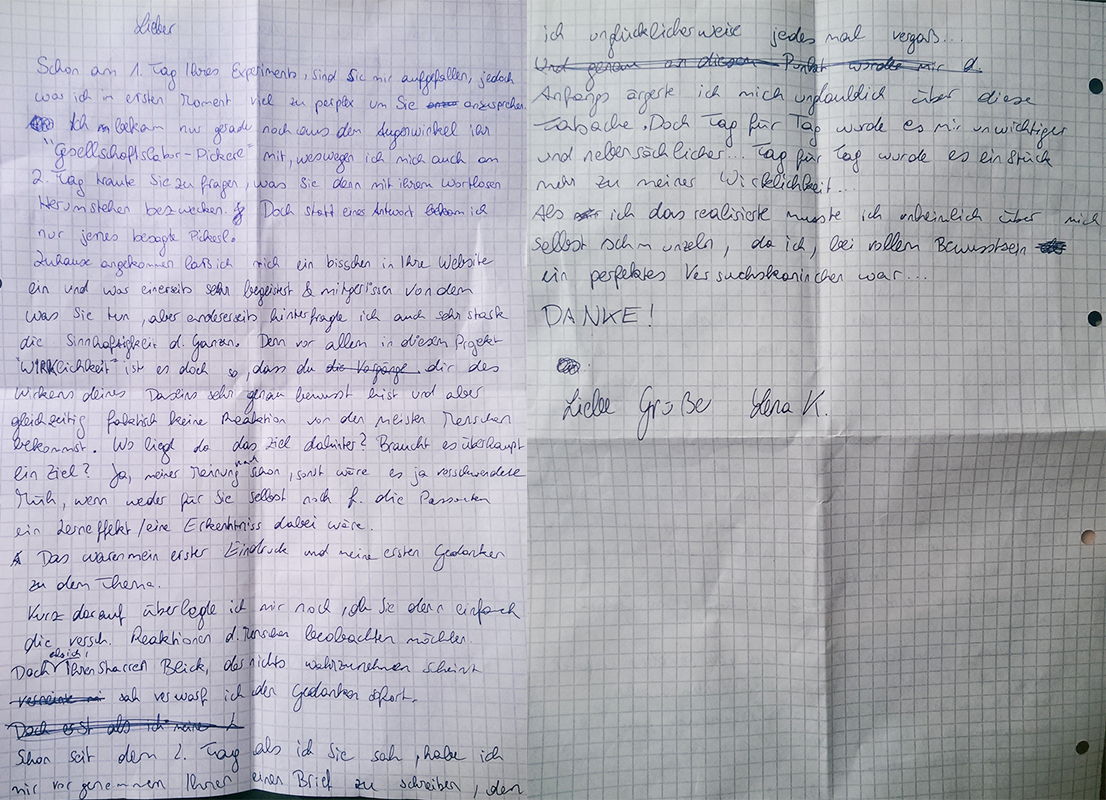 Lieber
Schon am 1. Tag Ihres Experiments, sind Sie mir aufgefallen, jedoch
was ich in ersten Moment viel zu perplex um Sie anzusprechen.
Ich bekam nur gerade noch aus dem Augenwinkel ihr
"Gesellschaftslabor-Pickerl" mit, weswegen ich mich auch am
2. Tag traute Sie zu fragen, was Sie denn mit ihrem wortlosen
Herumstehen bezwecken. Doch statt einer Antwort bekam ich
nur jenes besagte Pickerl.
Zuhause angekommen laß ich mich ein bisschen in Ihre Website
ein und war einerseits sehr begeistert & mitgerissen von dem
was Sie tun, aber andererseits hinterfragte ich auch sehr stark
die Sinnhaftigkeit d. Ganzen. Denn vor allem in diesem Projekt
"WIRKlichkeit" ist es doch so, dass du die Vorgänge dir des
Wirkens deines Daseins sehr genau bewusst bist und aber
gleichzeitig faktisch keine Reaktion von den meisten Menschen
bekommst. Wo liegt da das Ziel dahinter? Braucht es überhaupt
ein Ziel? Ja, meiner Meinung nach schon, sonst wäre es ja verschwendete
Müh, wenn weder für Sie selbst noch f. die Passanten
ein Lerneffekt/eine Erkenntniss dabei wäre.
Das waren mein erster Eindruck und meine ersten Gedanken
zu dem Thema.
Kurz darauf überlegte ich mir noch, ob Sie denn einfach
die versch. Reaktionen d. Menschen beobachten möchten.
Doch als ich Ihren starren Blick, der nichts wahrzunehmen scheint
sah verwarf ich den Gedanken sofort.
Doch erst als ich meine
Schon seit dem 2. Tag als ich Sie sah, habe ich
mir vorgenommen Ihnen einen Brief zu schreiben, den
ich unglücklicherweise jedes mal vergaß...
Und genau an diesem Punkt wurde mir d.
Anfangs ärgerte ich mich unglaublich über diese
Tatsache. Doch Tag für Tag wurde es mir unwichtiger
und nebensächlicher... Tag für Tag wurde es ein Stück
mehr zu meiner Wirklichkeit...
Als ich das realisierte musste ich unheimlich über mich
selbst schmunzeln, da ich, bei vollem Bewusstsein
ein perfektes Versuchskaninchen war...
DANKE!
Liebe Grüße Lena K.